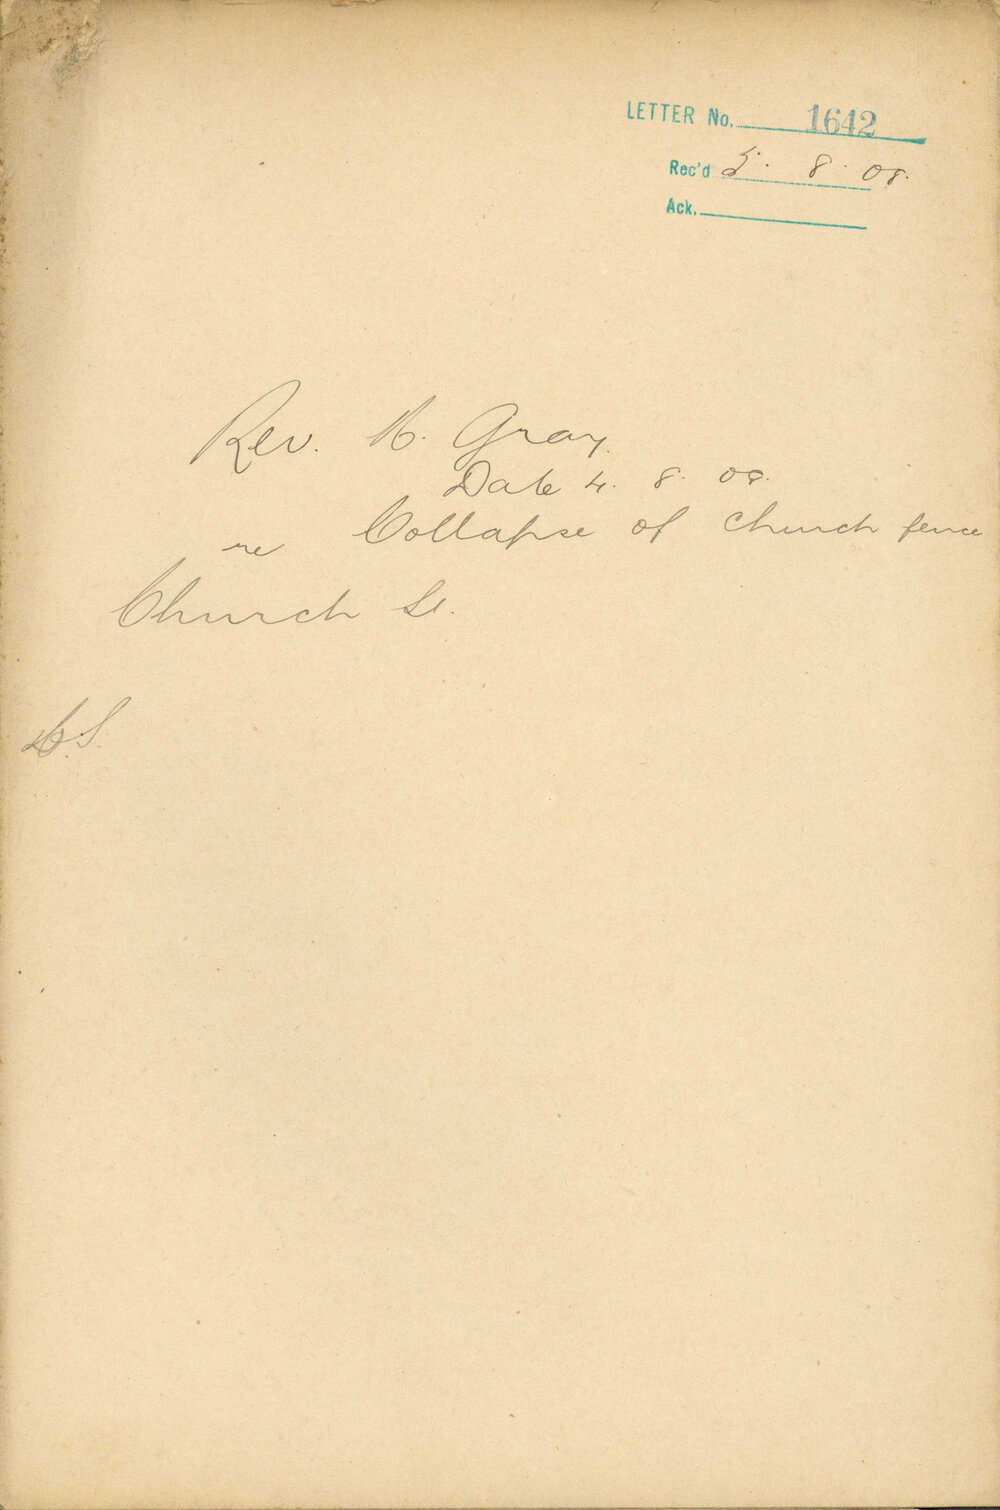 LETTER No. 1642
Rec'd 5. 8. 08.
Ack.
Rev. A. Gray.
Date 4. 8. 08.
re Collapse of Church fence
Church St.